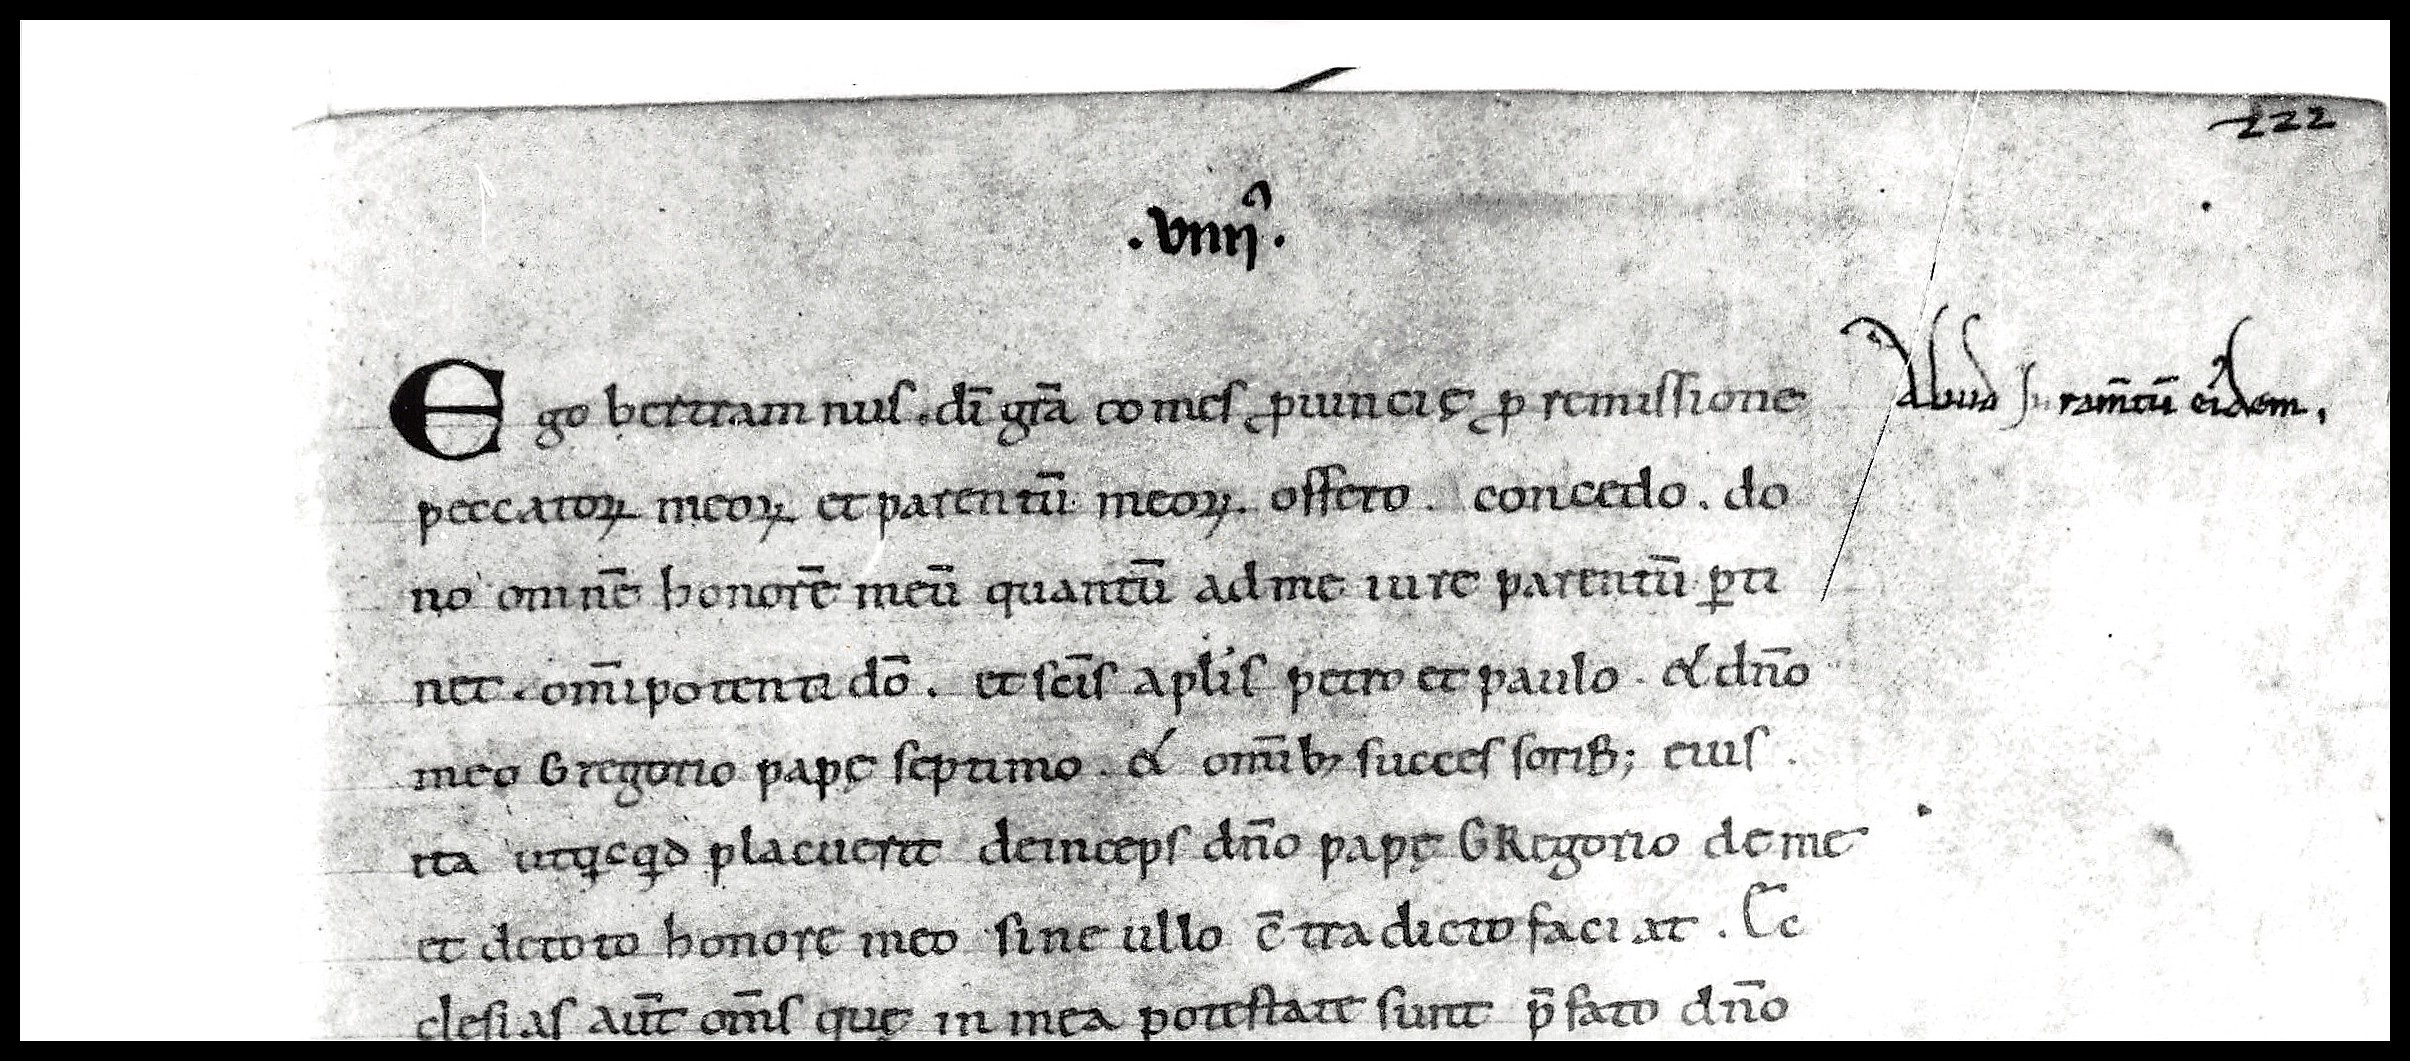 222
.VIIII^a.
Ego bertrannus. dī grā comes ꝓuincię ꝓ remissione
Aliud Iuramtū eidem.
peccatoꝝ meoꝝ et parentū meoꝝ. offero. concedo. do
no omnē honorē meū quantū ad me iure parentū ꝑti
net. om̄ipotenti dō. et scīs apl̄is petro et paulo. & dn̄o
meo Gregorio papę septimo. & om̄ibꝫ successoribꝫ; eius.
ita utqͥcqͥd placuerit deinceps dn̄o papę GRegorio de me
et de toto honore meo sine ullo c̄tradicto faciat. Ec
clesias aut̄ om̄s quę in mea potestate sunt p̄fato dn̄o